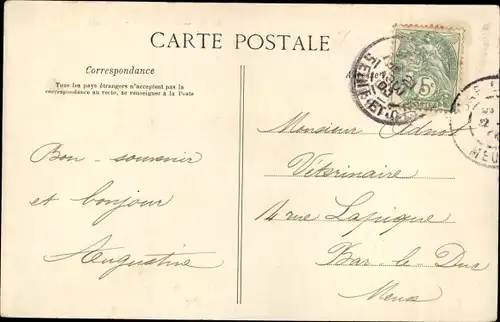 CARTE POSTALE
Correspondance
Tous les pays étrangers n'acceptant pas la
correspondance au recto, se renseigner à la Poste
Bon-souvenir
et bonjour
Augustine
5
Monsieur
Vétérinaire
14 rue Lapique
Bar le Duc
Meuse